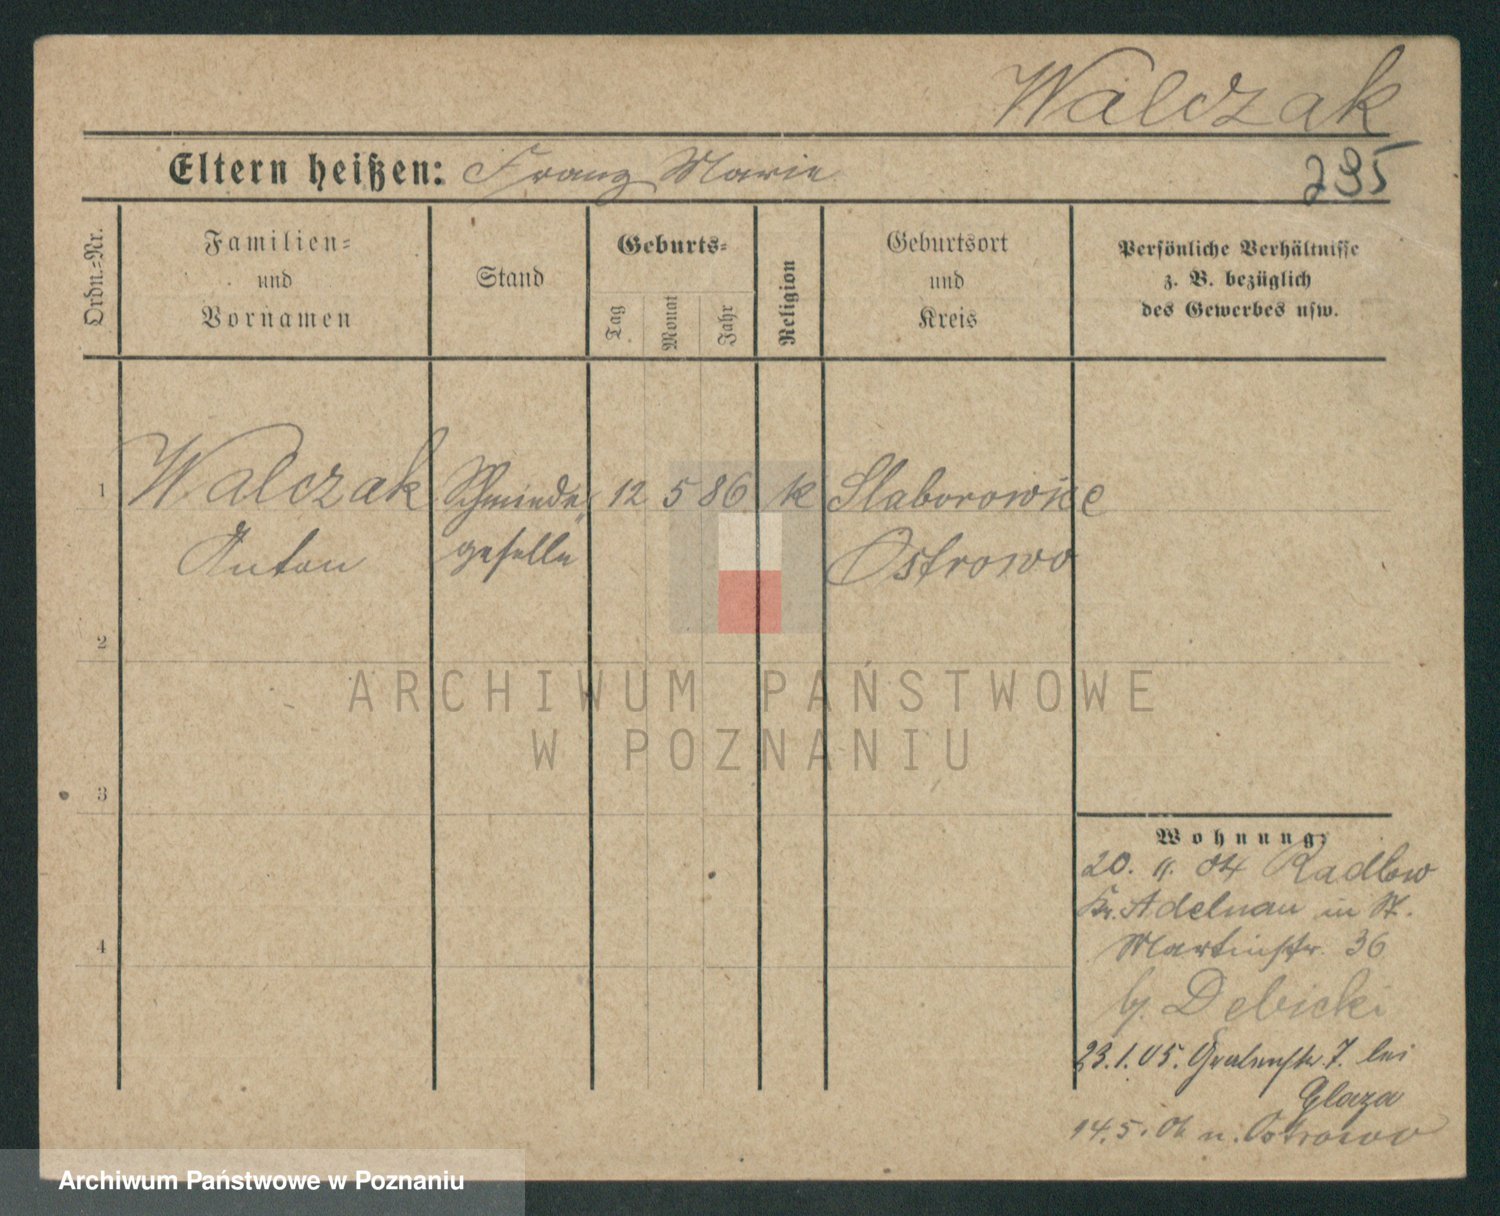 Walczak
Eltern heißen: Franz Marie
295
Ordn.-Nr.
Familien-
und
Vornamen
Stand
Geburts-
Tag
Monat
Jahr
Religion
Geburtsort
und
Kreis
Persönliche Verhältnisse
z. B. bezüglich
des Gewerbes usw.
1 Walczak Schmiede 12 5 86 k Slaborowice
Anton geselle Ostrowo
2
3
4
Wohnung:
20. 11. 04 Radlow
Kr. Adelnau in St.
Martinstr. 36
b. Debicki
23.1.05. Grabenstr. 7. bei
Glaza
14.5.06 n. Ostrowo
ARCHIWUM PAŃSTWOWE
W POZNANIU
Archiwum Państwowe w Poznaniu